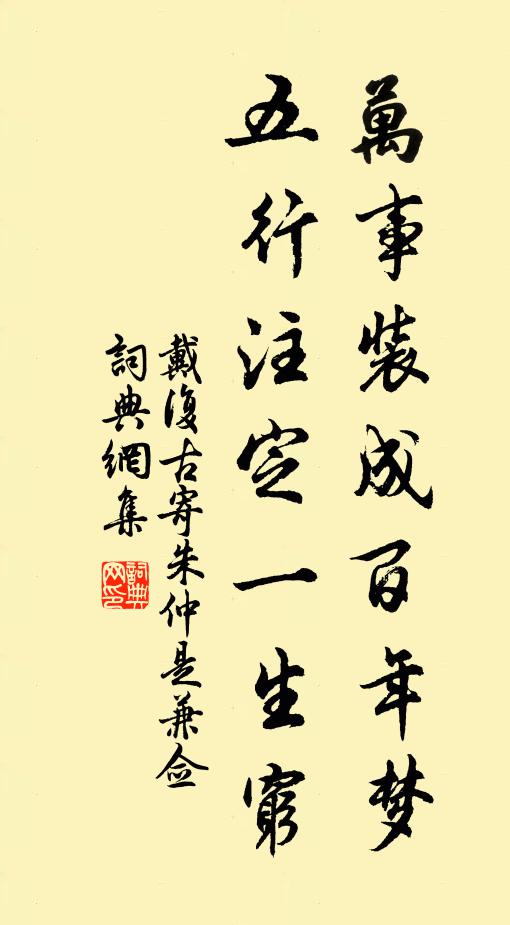 萬事裝成百年梦
五行注定一生窮
戴復古寄朱仲是兼佥
詞典網集
詞典网印